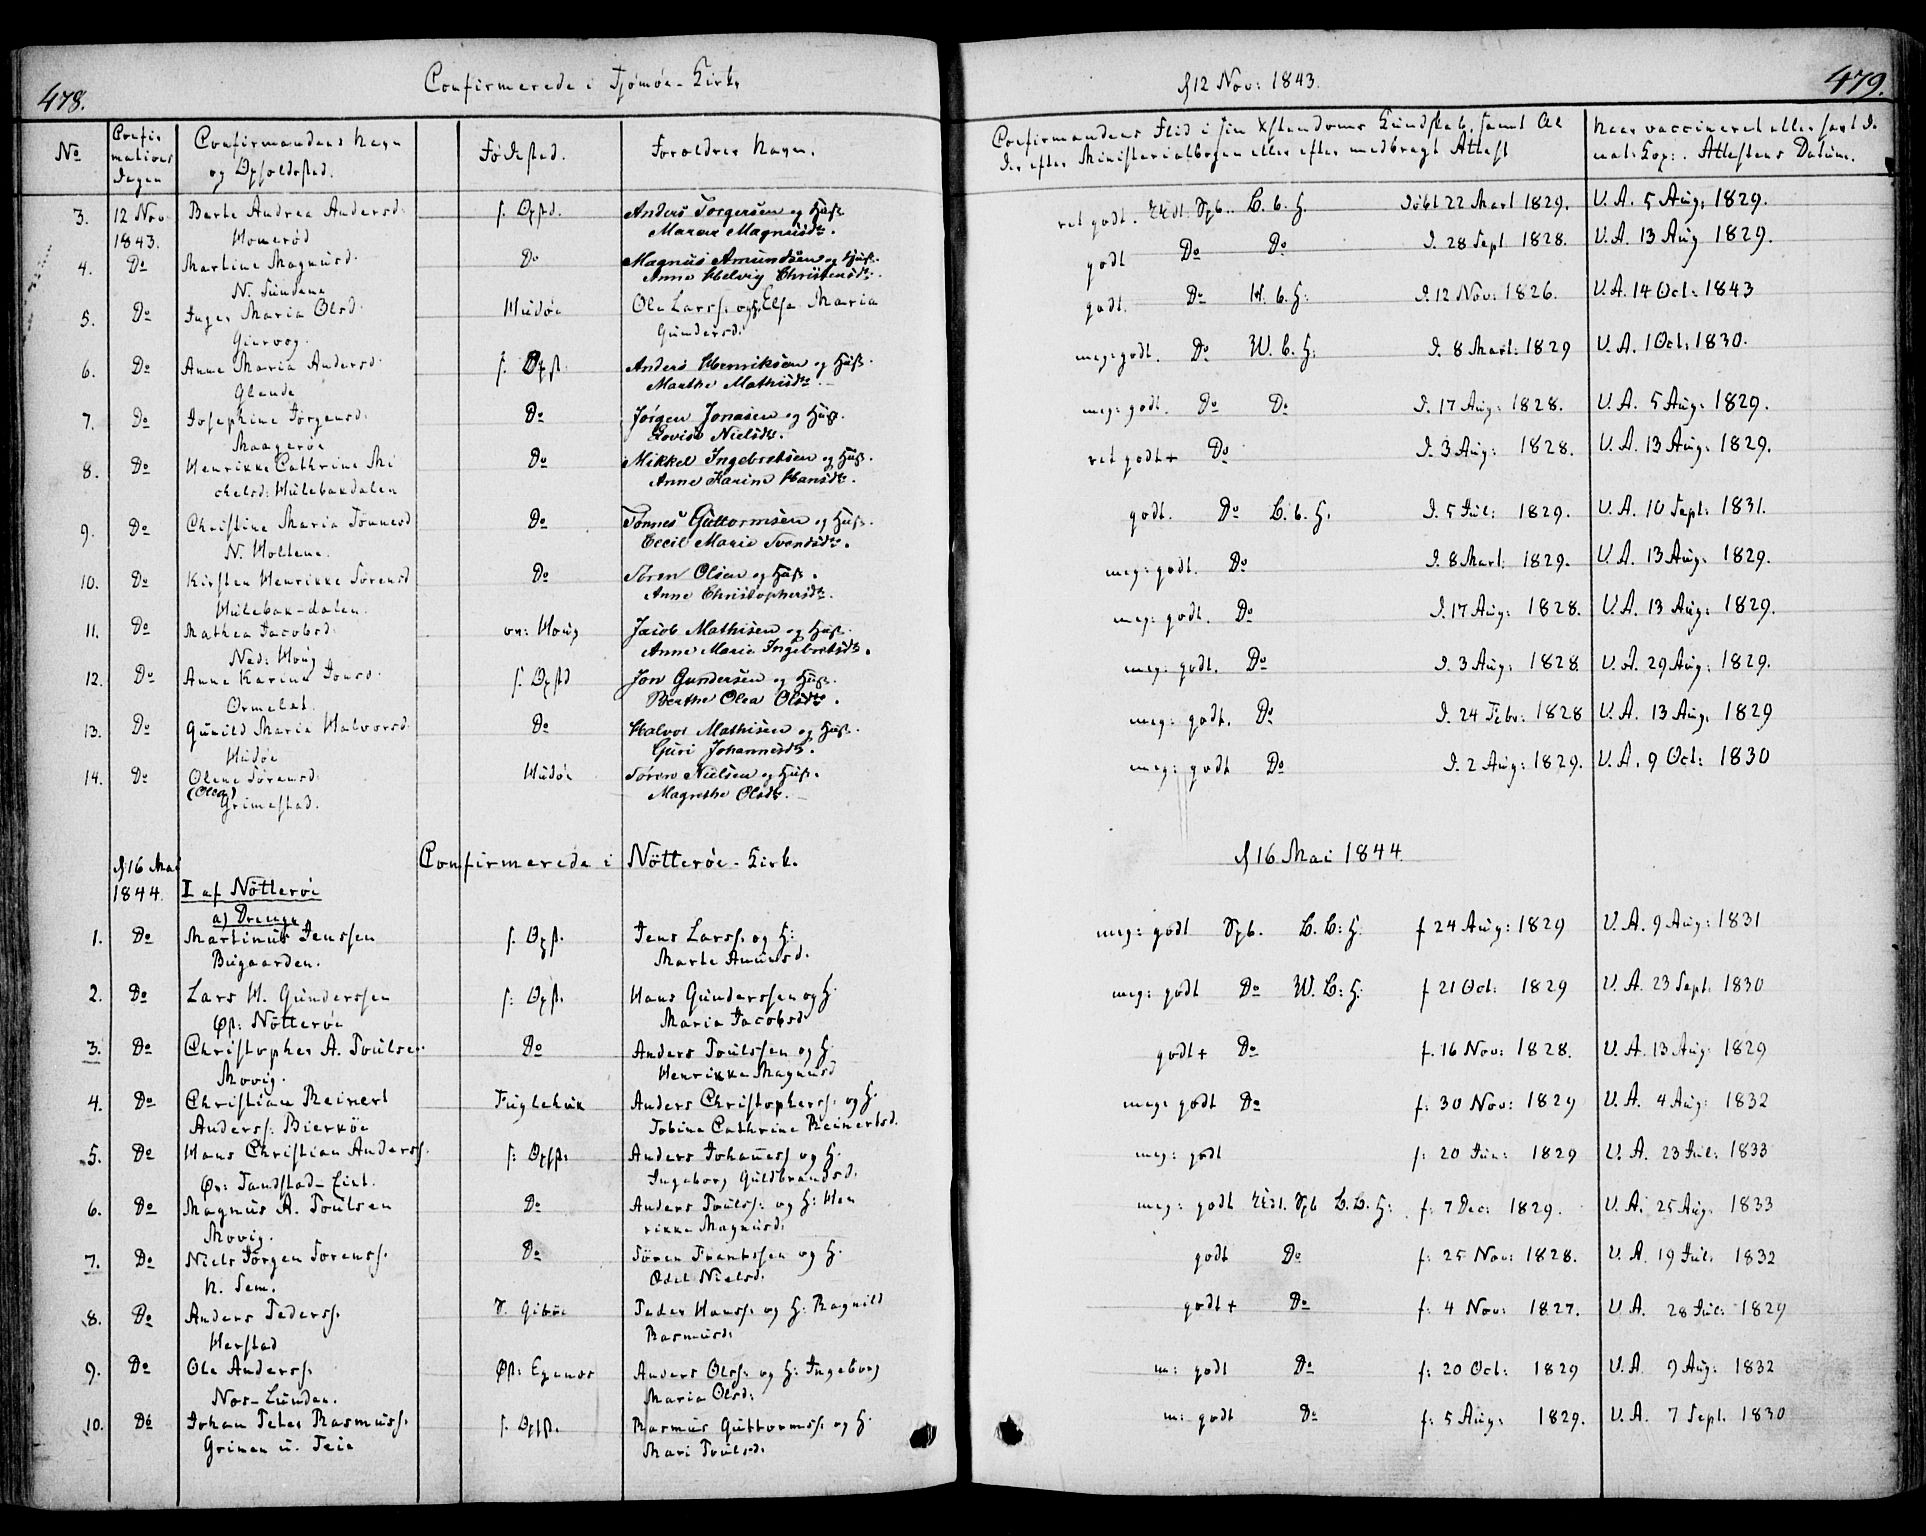 478.
Confirmerede i Tjömöe-Kirke
№
Confirmations Dagen
Confirmandens Navn og Opholdsted.
Födested.
Foreldres Navn.
3. 12 Nov 1843. Berte Andrea Andersd. s. Opst. Anders Torgersen og Hust.
Maren Magnusdr.
4. Do Martine Magnusd. Do Magnus Amundsen og Hust.
N. Sundene Anne Helvig Christensdr.
5. Do Inger Maria Olsd. Hudöe Ole Larss. og H. Else Maria
Giervog Gundersd.
6. Do Anne Maria Andersd. s. Opst. Anders Henriksen og Hust.
Glende Marthe Mathisdr.
7. Do Josephine Jörgensd. Do Jörgen Jonasen og Hust.
Maageröe Lovise Nielsdr.
8. Do Henrikke Cathrine Mi Do Mikkel Ingebretsen og Hust.
chelsd: Hulebakdalen Anne Karine Hansdr.
9. Do Christine Maria Tönnesd Do Tönnes Guttormsen og Hust.
N. Holtene. Cecil Marie Svendsdr.
10. Do Kirsten Henrikke Sörensd Do Sören Olsen og Hust.
Hulebak-dalen. Anne Christophersdr.
11. Do Mathea Jacobsd. ov: Houg Jacob Mathisen og Hust.
Ned: Houg Anne Marie Ingebretsdr.
12. Do Anne Karine Jonsd. s. Opst Jon Gundersen og Hust.
Ormelet. Berthe Olea Olsdr.
13. Do Gunild Maria Halvorsd. Do Halvor Mathisen og Hust.
Hudöe Guri Johannesdr.
14. Do Olene Sörensd. Hudöe Sören Nielsen og Hust.
(Olea) Grimestad. Magrethe Olsdr.
d 16 Mai 1844. Confirmerede i Nötteröe-Kirke
I af Nötteröe
a) Drenge
1. Do Martinus Jenssen s. Opst. Jens Larss. og H:
Bugaarden. Marte Amunsd.
2. Do Lars H. Gunderssen s: Opst. Hans Gunderssen og H.
Øst: Nötteröe Maria Jacobsd.
3. Do Christopher A. Poulsen. Do Anders Poulssen og H.
Movig. Henrikke Magnusd
4. Do Christian Reinert Fuglevik Anders Christopherss. og H.
Anderss: Bierköe Tobine Cathrine Reinertsd.
5. Do Hans Christian Anderss. s: Opst: Anders Johaness og H.
Øv: Ingeborg Guldbrandsd.
6. Do Magnus A. Poulsen Do Anders Pouls: og H: Hen
Movig. rikke Magnusd:
7. Do Niels Jörgen Sorenss. Do Sören Frantssen og H.
N. Sem. Odel Nielsd.
8. Do Anders Pederss. Peder Hanss: og H: Ragnild
Herstad Rasmusd:
9. Do Ole Anderss. Øst: Egenes Anders Olss: og H: Ingeborg
Nos-Lunden. Maria Olsd:
10. Do Johan Peter Rasmuss. s. Opst. Rasmus Guttormss. og H.
Grinen u. Teie Mari Poulsd.
479.
d 12 Nov: 1843.
Confirmandens Flid i sin Xstendoms Kundskab, samt Al
der efter Ministerialbogen eller efter medbragt Attest
Naar vaccineret eller havt de
nat: Kop: Attestens Datum.
ret godt. Udl. Spb. L. b. H. Döbt 22 Mart 1829. V. A. 5 Aug: 1829.
godt Do Do D. 28 Sept 1828. V. A. 13 Aug 1829.
godt. Do W. b. H: D. 12 Nov: 1826. V. A. 14 Oct: 1843
meg: godt. Do W. L. H: D. 8 Mart: 1829 V. A. 1 Oct: 1830.
meg: godt. Do Do D. 17 Aug: 1828. V. A. 5 Aug: 1829.
ret godt + Do D. 3 Aug: 1828. V. A. 13 Aug: 1829.
godt. Do L. b. H. D. 5 Jul: 1829. V. A. 10 Sept: 1831.
meg: godt. Do D. 8 Mart: 1829. V. A. 13 Aug: 1829.
meg: godt. Do D. 17 Aug: 1828. V. A. 13 Aug: 1829.
meg: godt. Do D. 3 Aug: 1828. V. A. 29 Aug: 1829.
meg: godt. Do D. 24 Febr: 1828 V. A. 13 Aug: 1829
meg: godt Do D. 2 Aug: 1829. V. A. 9 Oct: 1830
d 16 Mai 1844.
meg: godt Spb. L. L: H. f 24 Aug: 1829 V. A. 9 Aug: 1831
meg: godt Do W. L: H: f 21 Oct: 1829 V. A. 23 Sept: 1830
godt + Do f. 16 Nov: 1828. V. A. 13 Aug: 1829
meg: godt Do f: 30 Nov: 1829 V. A. 4 Aug: 1832
meg: godt f: 20 Jun: 1829 V. A. 23 Jul: 1833
meg: godt Udl. Spb L. L. H: f: 7 Dec: 1829. V. A. 25 Aug: 1833
godt Do f: 25 Nov: 1828. V. A. 19 Jul: 1832
godt + Do f: 4 Nov: 1827. V. A. 28 Jul: 1829
m: godt Do f: 20 Oct: 1829 V. A. 9 Aug: 1832
m: godt Do f: 5 Aug: 1829. V. A. 7 Sept. 1830